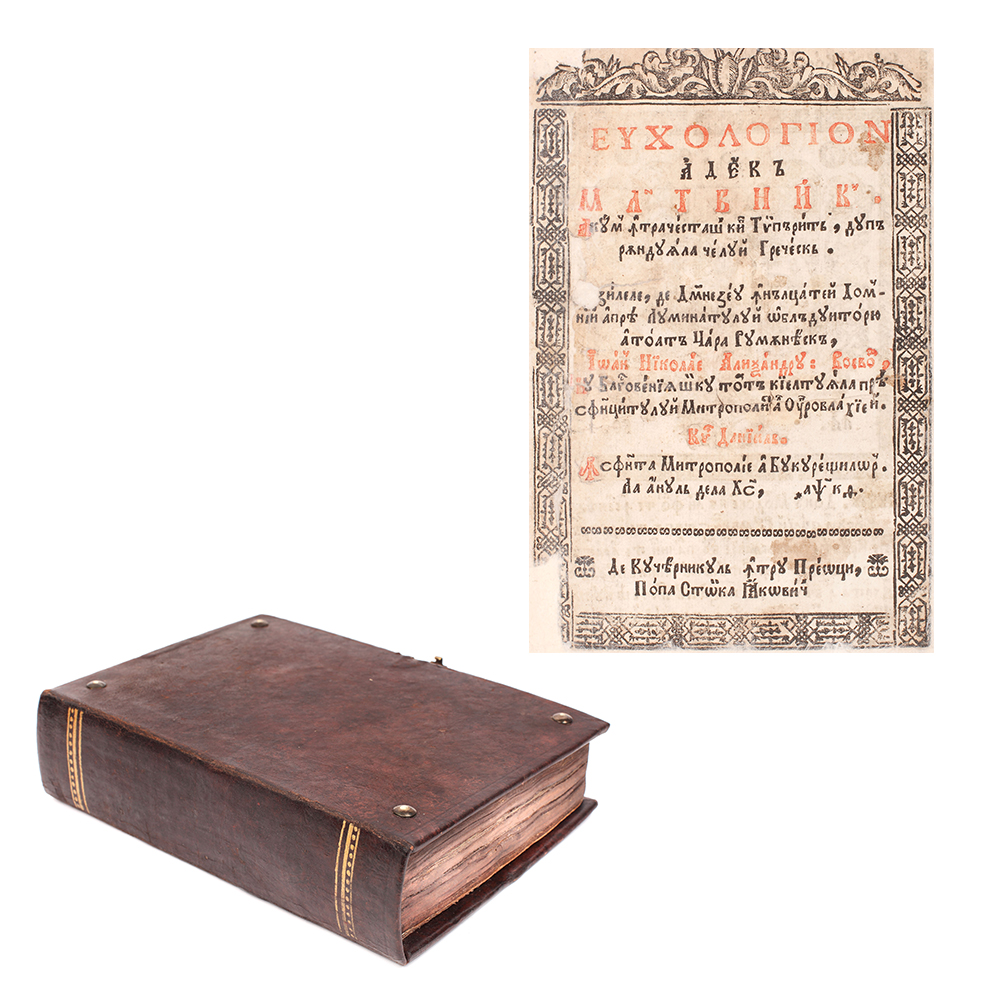 ΕΥΧΟΛΟΓΙΟΝ
А҆ДЕ́КЪ
МЛ҃ТВНИ́К.
А҆кꙋм ꙟ҆трачесташ кип Тѷпъритъ, дꙋпъ
рѫндꙋѧла челꙋй Греческъ.
зилеле, де Дм҃незеꙋ ꙟ҆нълцатей Дом-
нїй а҆прѣ Лꙋминатꙋлꙋй ѡ҆блъдꙋиторю
а҆тоатъ Цара Рꙋмѫнѣскъ,
Іѡан Нїколае Алиѯандрꙋ: Воевод,
Кꙋ Бл҃говенїѧ шѝ кꙋ тотъ кїелтꙋѧла прѣ
сфинцитꙋлꙋй Митрополит а҆ Оу҆гровлахїей.
Кѵр Данїилъ.
Ꙟ҆ сфн҃та Митрополїе а҆ Бꙋкꙋрещилѡр.
Ла а҆нꙋль дела Хс҃, ҂аѱкѳ.
Де Кꙋчѣрникꙋль ꙟ҆трꙋ Преѡци,
Попа Стѡйка Іаковичй